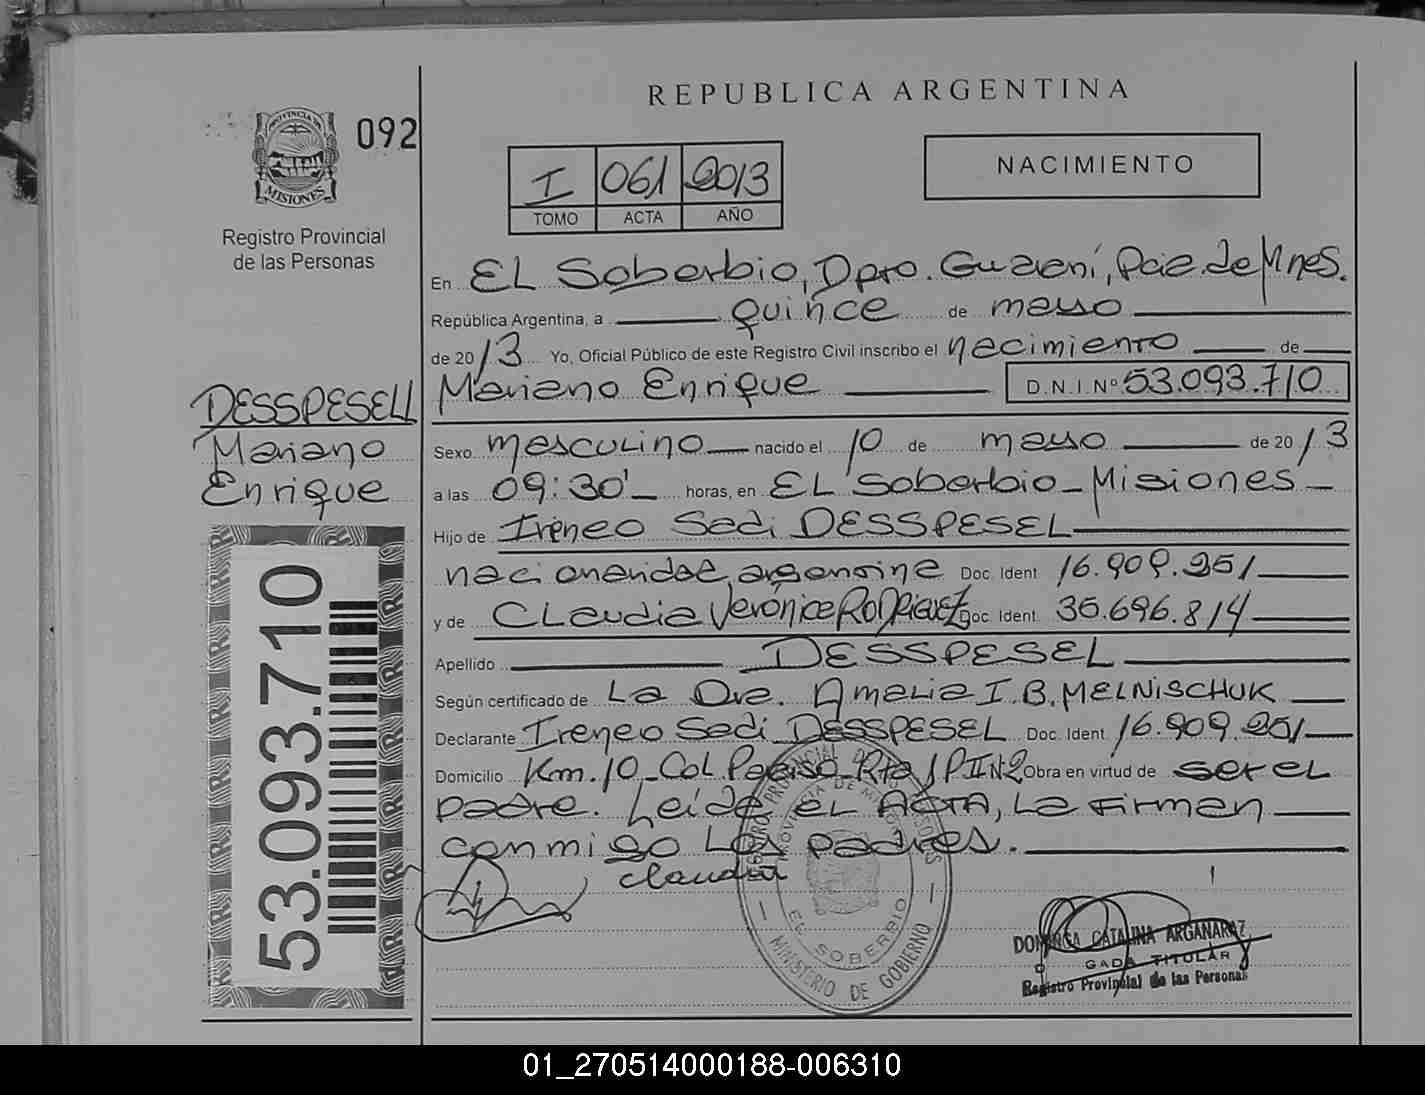 REPUBLICA ARGENTINA
092
PROVINCIA DE
MISIONES
Registro Provincial
de las Personas
I 061 2013
TOMO ACTA AÑO
NACIMIENTO
En EL Soberbio, Dpto. Guaraní, Pcia. de Mnes.
República Argentina, a quince de mayo
de 2013 Yo, Oficial Público de este Registro Civil inscribo el nacimiento de
Mariano Enrique D.N.I.Nº 53.093.710
DESSPESELL
Mariano
Enrique
53.093.710
Sexo masculino nacido el 10 de mayo de 2013
a las 09:30' horas, en EL Soberbio - Misiones -
Hijo de Ireneo Sadi DESSPESEL
nacionalidad argentina Doc. Ident. 16.909.251
y de CLaudia Verónica RODRIGUEZ Doc. Ident. 35.696.814
Apellido DESSPESEL
Según certificado de La Dra. Amalia I. B. MELNISCHUK
Declarante Ireneo Sadi DESSPESEL Doc. Ident. 16.909.251
Domicilio Km. 10 - Col. Paraiso - Rta Obra en virtud de ser el
padre. Leída el ACTA, La Firman
conmigo Los padres.
Claudia
EL SOBERBIO
MINISTERIO DE GOBIERNO
DOMINGA CATALINA ARGAÑARAZ
TITULAR
Registro Provincial de las Personas
01_270514000188-006310